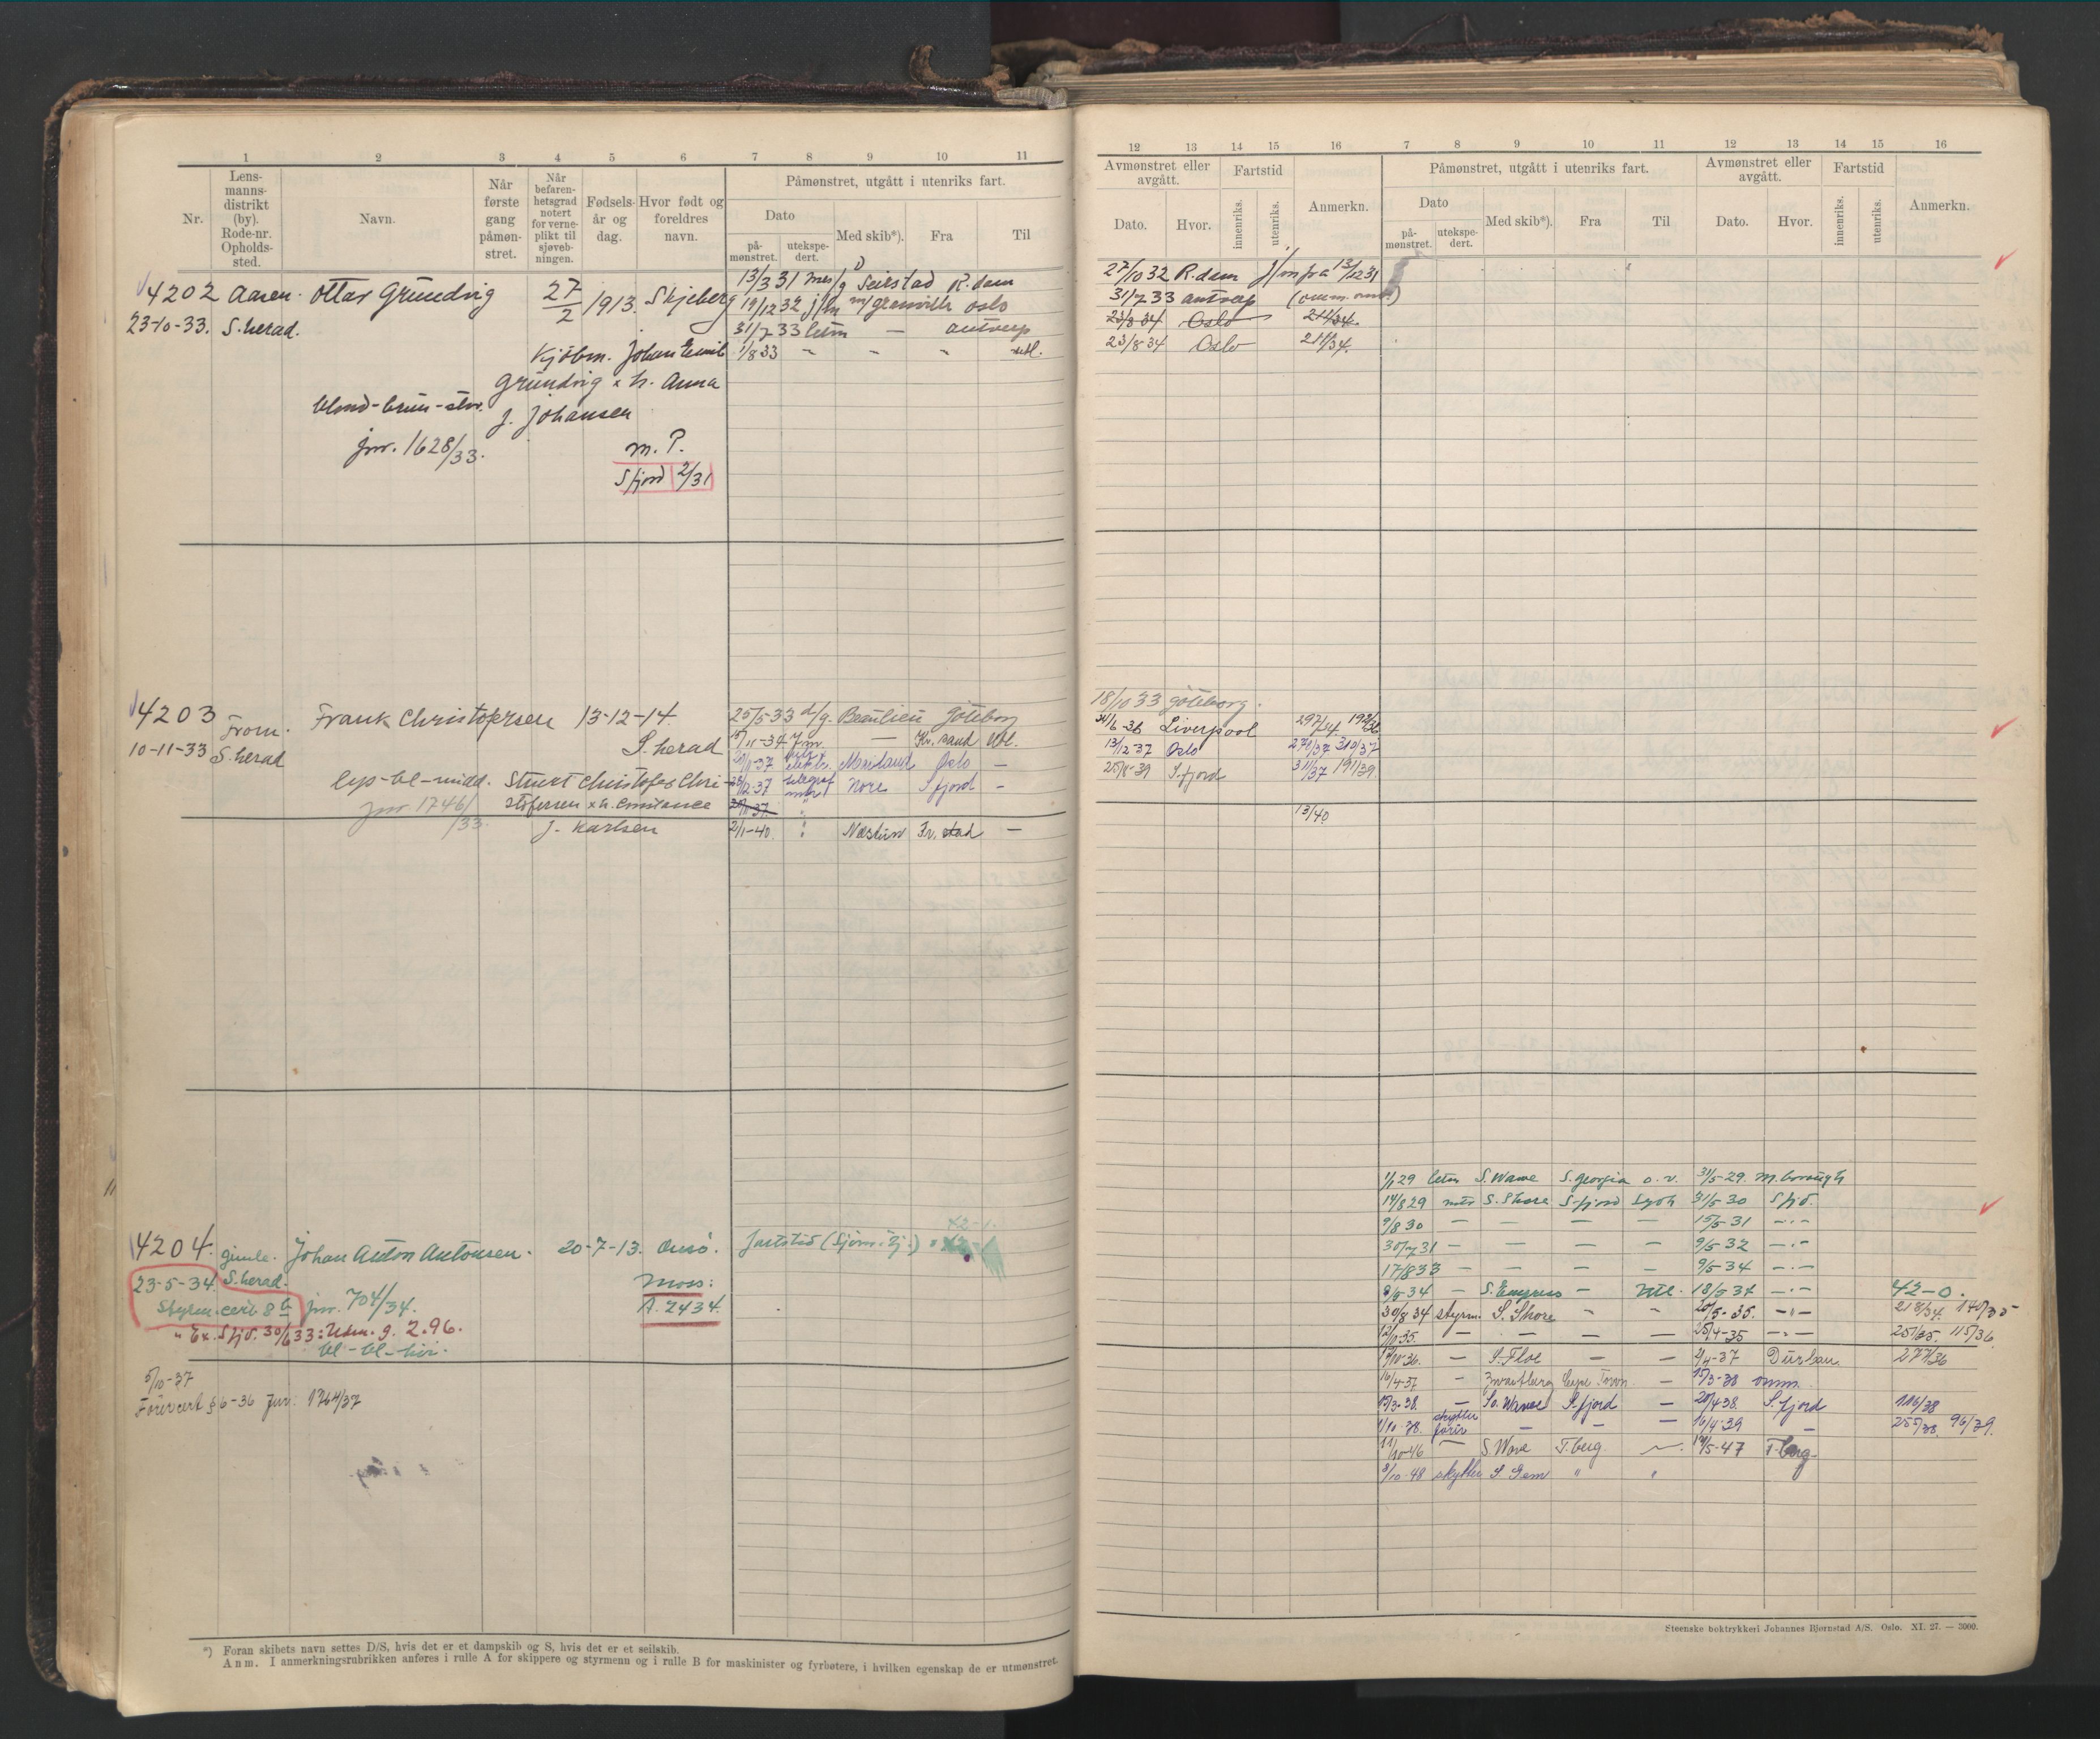 1 2 3 4 5 6 7 8 9 10 11
Nr.
Lens-
manns-
distrikt
(by).
Rode-nr.
Opholds-
sted.
Navn.
Når
første
gang
påmøn-
stret.
Når
befaren-
hetsgrad
notert
for verne-
plikt til
sjøveb-
ningen.
Fødsels-
år og
dag.
Hvor født og
foreldres
navn.
Påmønstret, utgått i utenriks fart.
Dato
på-
mønstret.
utekspe-
dert.
Med skib*).
Fra
Til
4202 Aasen. Ottar Gründvig 27/2 1913. Skjeberg 13/3 31 Seirstad R.dam
19/12 32 j/m m/ Granville Oslo
23-10-33. S.herad. 31/7 33 — Antverp
Kjöbm. Johan Emil 1/8 33 utl.
Gründvig x h. Anna
blond-brun-stor. J. Johansen
jnr. 1628/33.
M. P.
Sfjord 2/31
4203 From. Frank Christofersen 13-12-14. 25/5-33 d/g. Beaulieu Göteborg
S.herad 11-34 Jm. — Kr.sand Utl.
10-11-33 S.herad 11-37 Oslo —
lys-bl-midd. Stuert Christofer Chri- 12-37 telegraf Nore S.fjord -
jnr. 1746/33. stofersen x h. Constance
J. Karlsen 2/1-40. Fr.stad —
4204. Gimle. Johan Anton Antonsen. 20-7-13. Onsö. Fartstid
42-1.
23-5-34. S.herad. Moss:
Styrm.cert. 8 b jnr. 704/34. A. 2434.
" Ex. Sfjd. 30/6 33: Udm. g. 2.96.
bl-bl-
5/10-37
Förercert § 6-36 Jnr. 1764/37
*) Foran skibets navn settes D/S, hvis det er et dampskib og S, hvis det er et seilskib.
Anm. I anmerkningsrubrikken anføres i rulle A for skippere og styrmenn og i rulle B for maskinister og fyrbøtere, i hvilken egenskap de er utmønstret.
12 13 14 15 16 7 8 9 10 11 12 13 14 15 16
Avmønstret eller
avgått.
Dato.
Hvor.
Fartstid
innenriks.
utenriks.
Anmerkn.
Påmønstret, utgått i utenriks fart.
Dato
på-
mønstret.
utekspe-
dert.
Med skib*).
Fra
Til
Avmønstret eller
avgått.
Dato.
Hvor.
Fartstid
innenriks.
utenriks.
Anmerkn.
27/10 32 R.dam j/m fra 13/12 31
31/7 33 Antverp
23/8 34 Oslo 211/34.
23/8-34 Oslo 211/34.
18/10 33 Göteborg.
1/6-36 Liverpool 297/34 192/36
13/12 37 Oslo 278/37 310/37
25/8-39 S.fjord 311/37 191/39.
13/40
1/1 29 S. Wawe S. Georgia o.v. 31/5-29. M.borough
14/8 29 mtr S. Shore S-fjord Sydh 31/5 30 Sfjd.
9/8 30 — — — — 15/5 31 -"-
30/7 31 — — — — 9/5-32 -"-
17/8 33 — — — — 9/5-34 -"-
9/5-34 — S. Empress — Utl. 18/5 34 -"- 42-0.
30/8 34 styrm. S. Shore " " 20/5-35. -"- 218/34 140/35
12/11-35. — — — — 25/4-35 -"- 251/35. 115/36
10-36. — S. Floe — — 2/4-37 Durban 277/36
16/4-37 — Cape Town — 15/3-38 omm.
15/3-38. — So. Wawe S.fjord — 20/4-38. S.fjord 116/38
1/10-38. skytter — — — 16/4-39 — 255/38. 96/39.
11/10-46 — S. Wave T.berg 5-47 T.berg
8/10-48 skytter S. Gem " "
Steenske boktrykkeri Johannes Bjørnstad A/S. Oslo. XI. 27. — 3000.